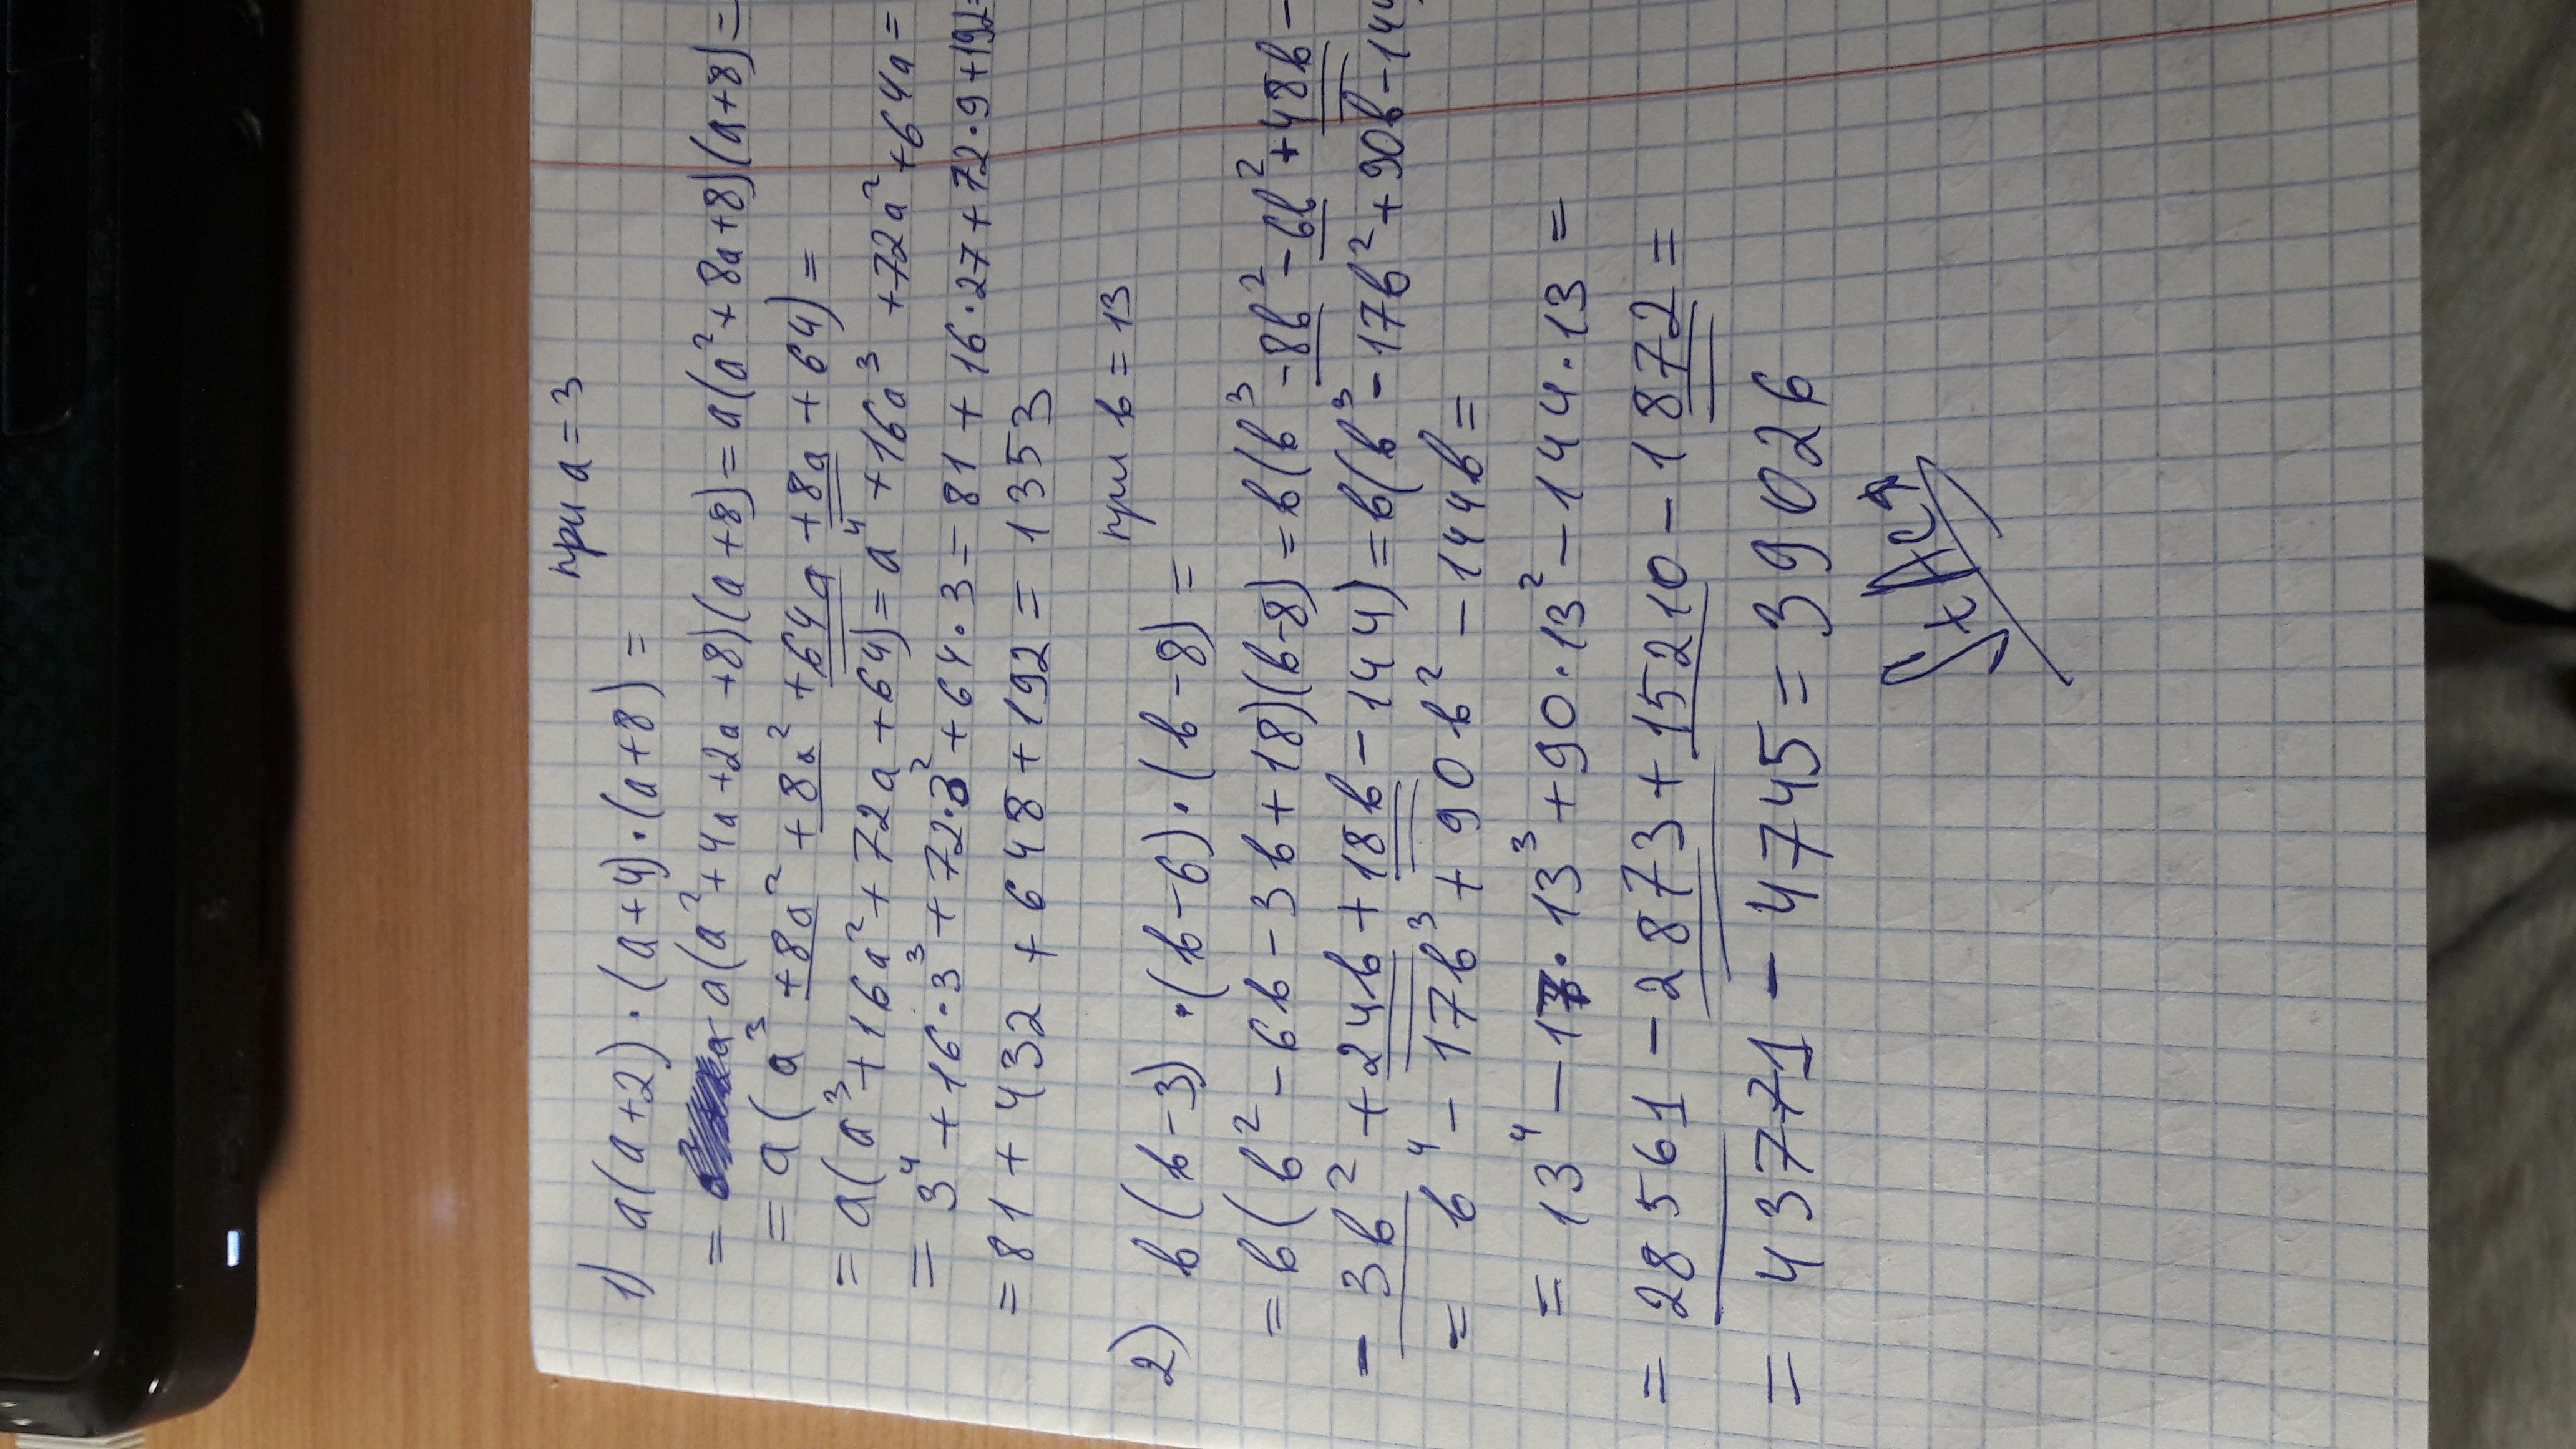 при a = 3
1) a(a+2)·(a+4)·(a+8) =
= a(a²+4a+2a+8)(a+8) = a(a²+8a+8)(a+8) =
= a(a³+8a²+8a²+64a+8a+64) =
= a(a³+16a²+72a+64) = a⁴+16a³+72a²+64a =
= 3⁴+16·3³+72·3²+64·3 = 81+16·27+72·9+192=
= 81+432+648+192 = 1353
2) b(b-3)·(b-6)·(b-8) = при b = 13
= b(b²-6b-3b+18)(b-8) = b(b³-8b²-6b²+48b-
-3b²+24b+18b-144) = b(b³-17b²+90b-144
= b⁴-17b³+90b²-144b =
= 13⁴-17·13³+90·13²-144·13 =
= 28561-2873+15210-1872 =
= 43771-4745 = 39026